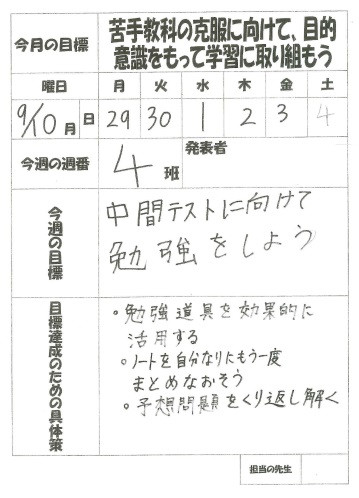 今月の目標
苦手教科の克服に向けて、目的
意識をもって学習に取り組もう
曜日 月 火 水 木 金 土
9/10月 日 29 30 1 2 3 4
今週の週番 4班 発表者
今週の目標
中間テストに向けて
勉強をしよう
目標達成のための具体策
・勉強道具を効果的に
活用する
・ノートを自分なりにもう一度
まとめなおそう
・予想問題をくり返し解く
担当の先生